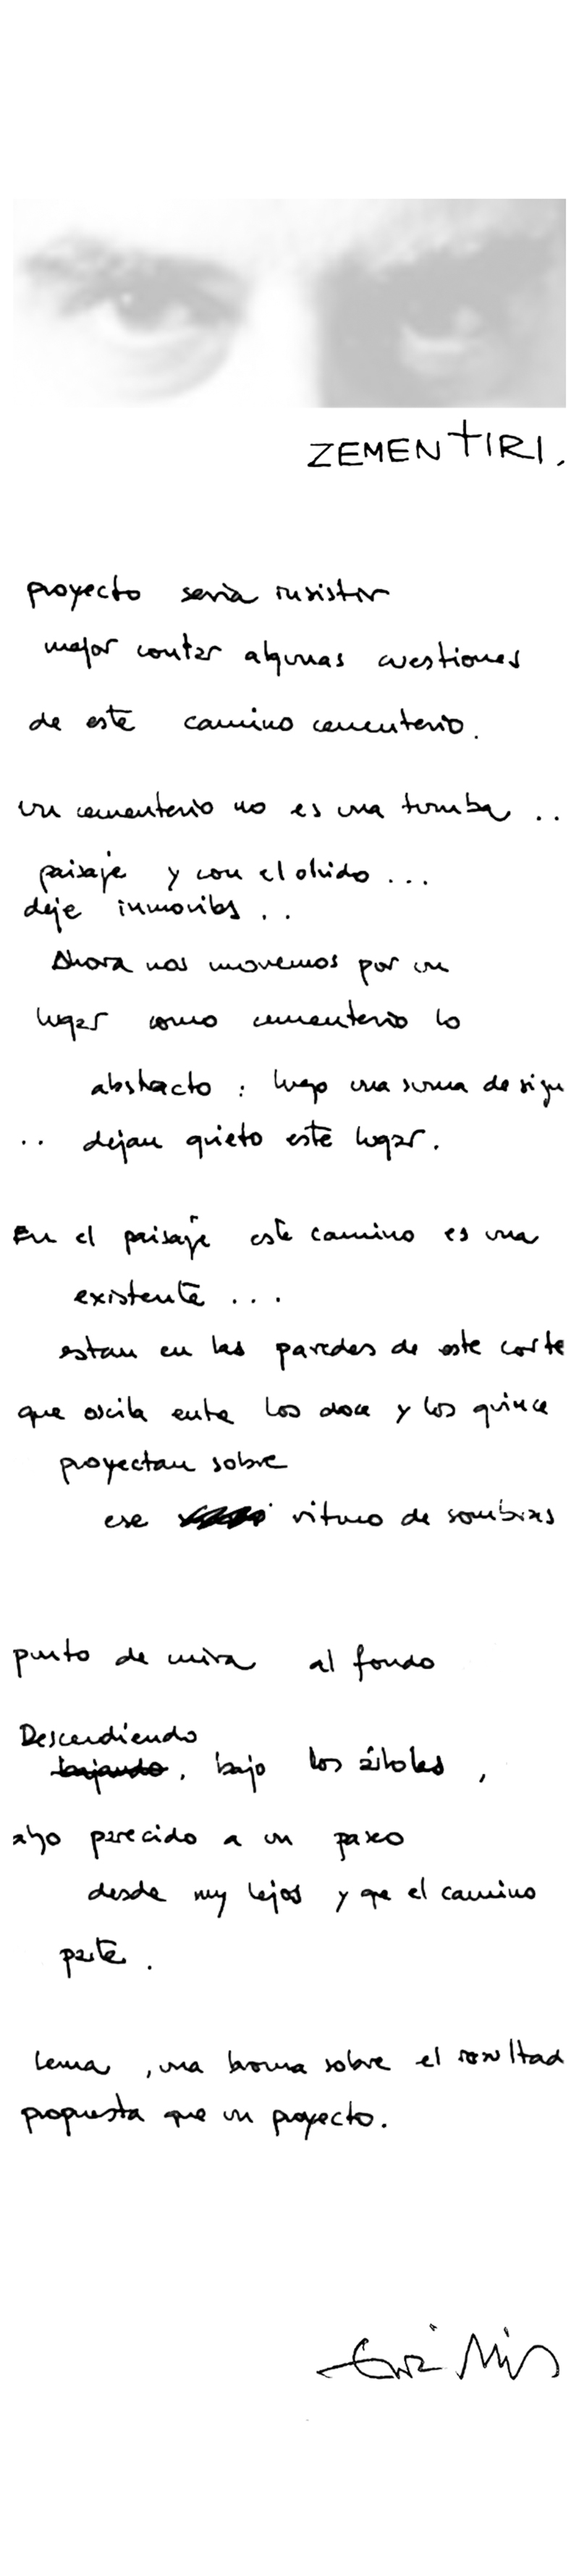 ZEMENTIRI.
proyecto seria insistir
mejor contar algunas cuestiones
de este camino cementerio.
un cementerio no es una tumba ..
paisaje y con el olvido ...
deje inmoviles ..
Ahora nos movemos por un
lugar como cementerio lo
abstracto : luego una suma de sign
.. dejan quieto este lugar.
En el paisaje este camino es una
existente ...
estan en las paredes de este corte
que oscila entre los doce y los quince
proyectan sobre
ese ritmo de sombras
punto de mira al fondo
Descendiendo
bajando, bajo los árboles,
algo parecido a un paseo
desde muy lejos y que el camino
parte.
lema, una broma sobre el resultad
propuesta que un proyecto.